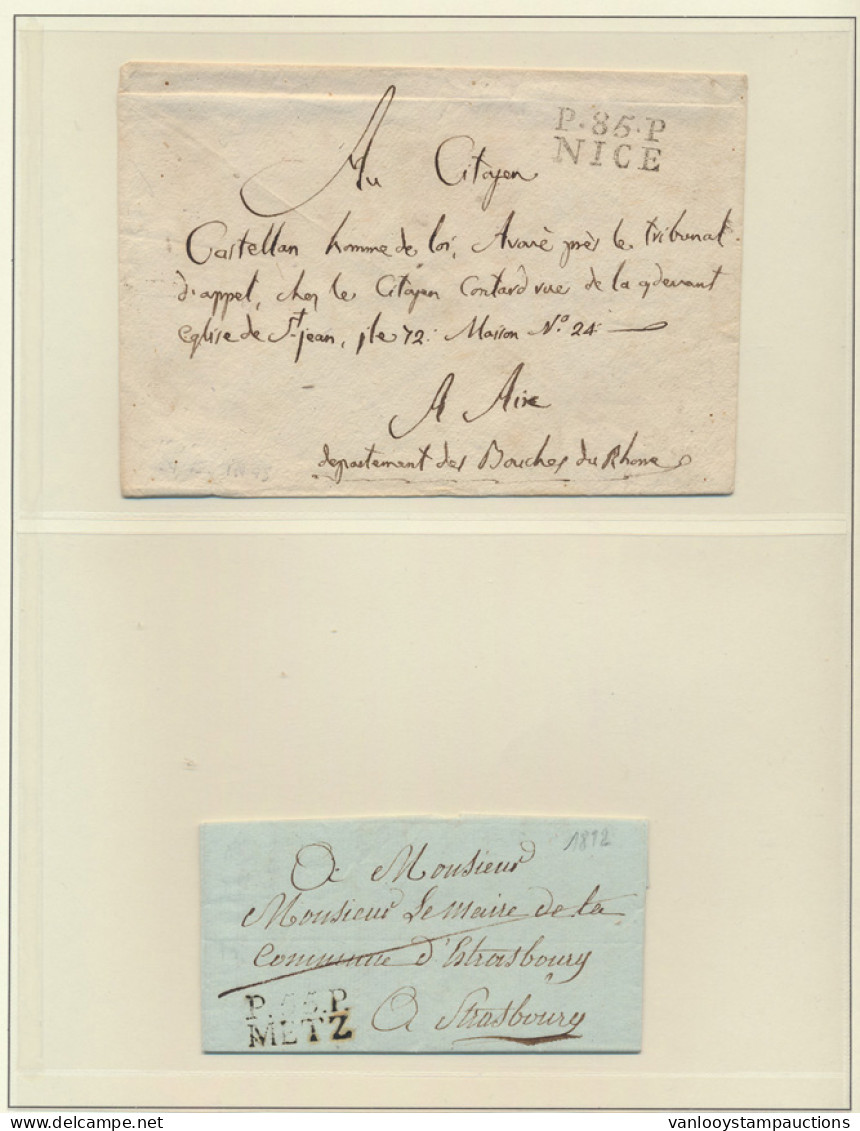 P.85.P
NICE
Au Citoyen
Castellan homme de loi, Avoué près le tribunal
d'appel, chez le Citoyen Contard rue de la cydevant
eglise de St jean, jle 72. Maison No 24.
A Aix
departement des Bouches du Rhone
1812
A Monsieur
Monsieur Le maire de la
Commune d'Estrasbourg
P.55.P.
METZ
A Strasbourg
vanlooystampauctions